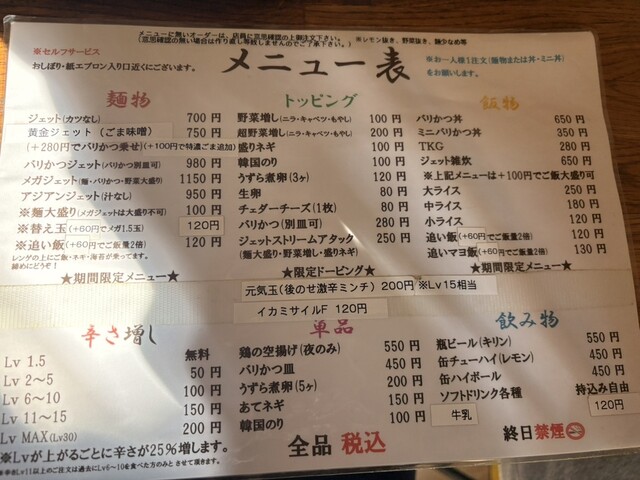 メニューに無いオーダーは、店員に意思確認の上御注文下さい。
(意思確認の無い場合は作り直し等致しませんのでご了承下さい。) ※レモン抜き、野菜抜き、麺少なめ等
※セルフサービス
おしぼり・紙エプロン入り口近くにございます。
メニュー表
※お一人様1注文(麺物または丼・ミニ丼)
をお願します。
麺物
ジェット(カツなし) 700 円
黄金ジェット(ごま味噌) 750 円
(+280円でバリかつ乗せ)(+100円で特濃ごま追加)
バリかつジェット(バリかつ別皿可) 980 円
メガジェット(麺・バリかつ・野菜大盛り) 1150 円
アジアンジェット(汁なし) 950 円
※麺大盛り(メガジェットは大盛り不可) 100 円
※替え玉(+60円でメガ1.5玉) 120円
※追い飯(+60円でご飯量2倍) 120 円
レンゲの上にご飯・ネギ・海苔が乗ってます。
締めにどうぞ!
★期間限定メニュー★
トッピング
野菜増し(ニラ・キャベツ・もやし) 100 円
超野菜増し(ニラ・キャベツ・もやし) 200 円
盛りネギ 100 円
韓国のり 100 円
うずら煮卵(3ヶ) 120 円
生卵 80 円
チェダーチーズ(1枚) 80 円
バリかつ(別皿可) 280 円
ジェットストリームアタック 250 円
(麺大盛り・野菜増し・盛りネギ)
★限定ドーピング★
飯物
バリかつ丼 650 円
ミニバリかつ丼 350 円
TKG 280 円
ジェット雑炊 650 円
※上記メニューは+100円でご飯大盛り可
大ライス 250 円
中ライス 180 円
小ライス 120 円
追い飯(+60円でご飯量2倍) 120 円
追いマヨ飯(+60円でご飯量2倍) 130 円
★期間限定メニュー★
元気玉(後のせ激辛ミンチ)200円 ※Lv15相当
イカミサイルF 120円
辛さ増し
Lv 1.5 無料
Lv 2～5 50 円
Lv 6～10 100 円
Lv 11～15 150 円
Lv MAX(Lv30) 200 円
※Lvが上がるごとに辛さが25%増します。
※辛さLv11以上のご注文は過去にLv6～10を食べた方のみと させて頂きます。
単品
鶏の空揚げ(夜のみ) 550 円
バリかつ皿 450 円
うずら煮卵(5ヶ) 200 円
あてネギ 150 円
韓国のり 100 円
全品 税込
飲み物
瓶ビール(キリン) 550 円
缶チューハイ(レモン) 450 円
缶ハイボール 450 円
ソフトドリンク各種 持込み自由
牛乳 120円
終日禁煙